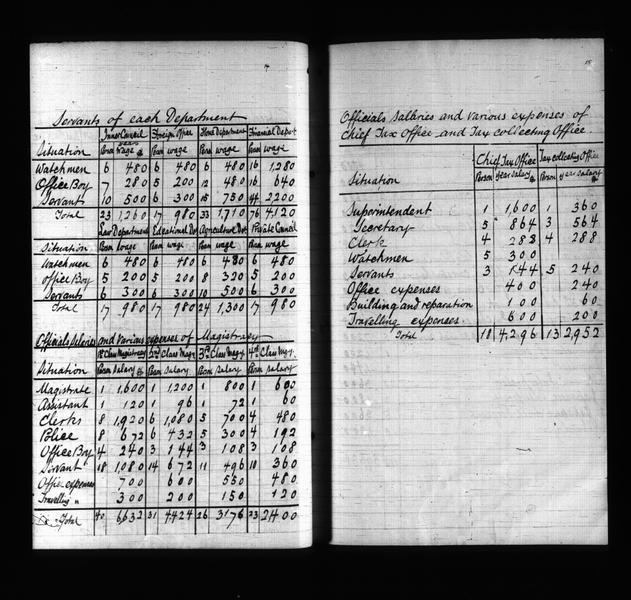 Servants of each Department
Inner Council Foreign Office Home Department Financial Depart
Situation Person years wage Person wage Person wage Person wage
Watchmen 6 480 6 480 6 480 16 1,280
Office Boy 7 280 5 200 12 480 16 640
Servants 10 500 6 300 15 750 44 2200
Total 23 1,260 17 980 33 1,710 76 4,120
Law Department Educational Dpt Agriculture Dpt Private Council
Situation Person wage Person wage Person wage Person wage
Watchmen 6 480 6 480 6 480 6 480
Office Boy 5 200 5 200 8 320 5 200
Servants 6 300 6 300 10 500 6 300
Total 17 980 17 980 24 1,300 17 980
Officials Salaries and various expenses of Magistracy
1st Class Magistracy 2nd Class Magy. 3rd Class Magy. 4th Class Magy.
Situation Person salary Person salary Person salary Person salary
Magistrate 1 1,600 1 1,200 1 800 1 600
Assistant 1 120 1 96 1 72 1 60
Clerks 8 1,920 6 1,080 5 700 4 480
Police 8 672 6 432 5 300 4 192
Office Boy 4 240 3 144 3 108 3 108
Servant 18 1,080 14 672 11 496 10 360
Office expenses 700 600 550 480
Travelling " 300 200 150 120
Total 40 6632 31 4424 26 3176 23 2400
15
Officials Salaries and various expenses of
Chief Tax Office and Tax collecting Office.
Chief Tax Office Tax collecting Office
Situation Person year salary Person year salary
Superintendent 1 1,600 1 360
Secretary 5 864 3 564
Clerk 4 288 4 288
Watchmen 5 300
Servants 3 144 5 240
Office expenses 400 240
Building and reparation 100 60
Travelling expenses. 600 200
Total 18 4,296 13 2,952